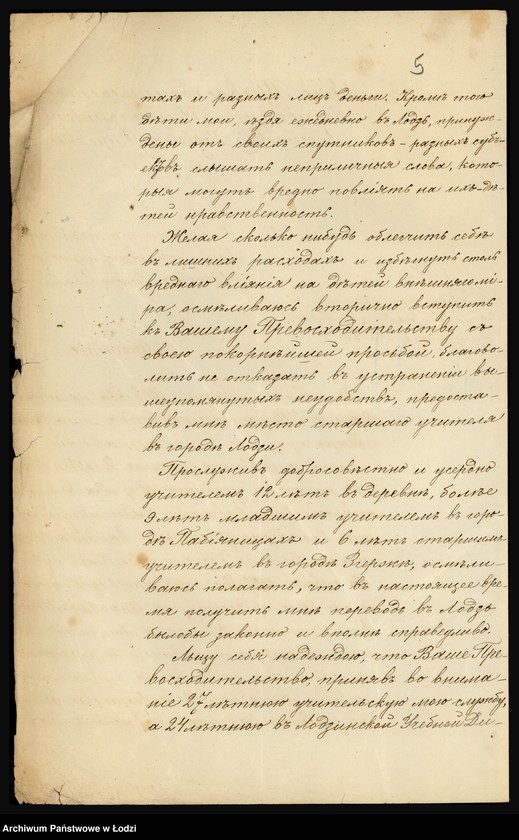 5
тахъ и разныхъ лицъ деньги. Кромѣ того
дѣти мои, ѣздя ежедневно въ Лодзь, принуж-
дены отъ своихъ спутниковъ – разныхъ субъ-
ектовъ слышать неприличныя слова, кото-
рыя могутъ вредно повліять на ихъ – дѣ-
тей нравственность.
Желая сколько нибудь облегчить себѣ
въ лишнихъ расходахъ и избѣгнуть столь
вреднаго вліянія на дѣтей внѣшняго мі-
ра, осмѣливаюсь вторично вступить
къ Вашему Превосходительству съ
своею покорнѣйшей просьбой, благово-
лить не отказать въ устраненіи вы-
шеупомянутыхъ неудобствъ, предоста-
вивъ мнѣ мѣсто старшаго учителя
въ городѣ Лодзи.
Прослуживъ добросовѣстно и усердно
учителемъ 12 лѣтъ въ деревнѣ, болѣе
9 лѣтъ младшимъ учителемъ въ горо-
дѣ Пабіяницахъ и 6 лѣтъ старшимъ
учителемъ въ городѣ Згержѣ, осмѣли-
ваюсь полагать, что въ настоящее вре-
мя получить мнѣ переводъ въ Лодзь
былобы законно и вполнѣ справедливо.
Льщу себя надеждою, что Ваше Пре-
восходительство, принявъ во внима-
ніе 27 лѣтнюю учительскую мою службу,
а 24 лѣтнюю въ Лодзинской Учебной Ди-
Archiwum Państwowe w Łodzi